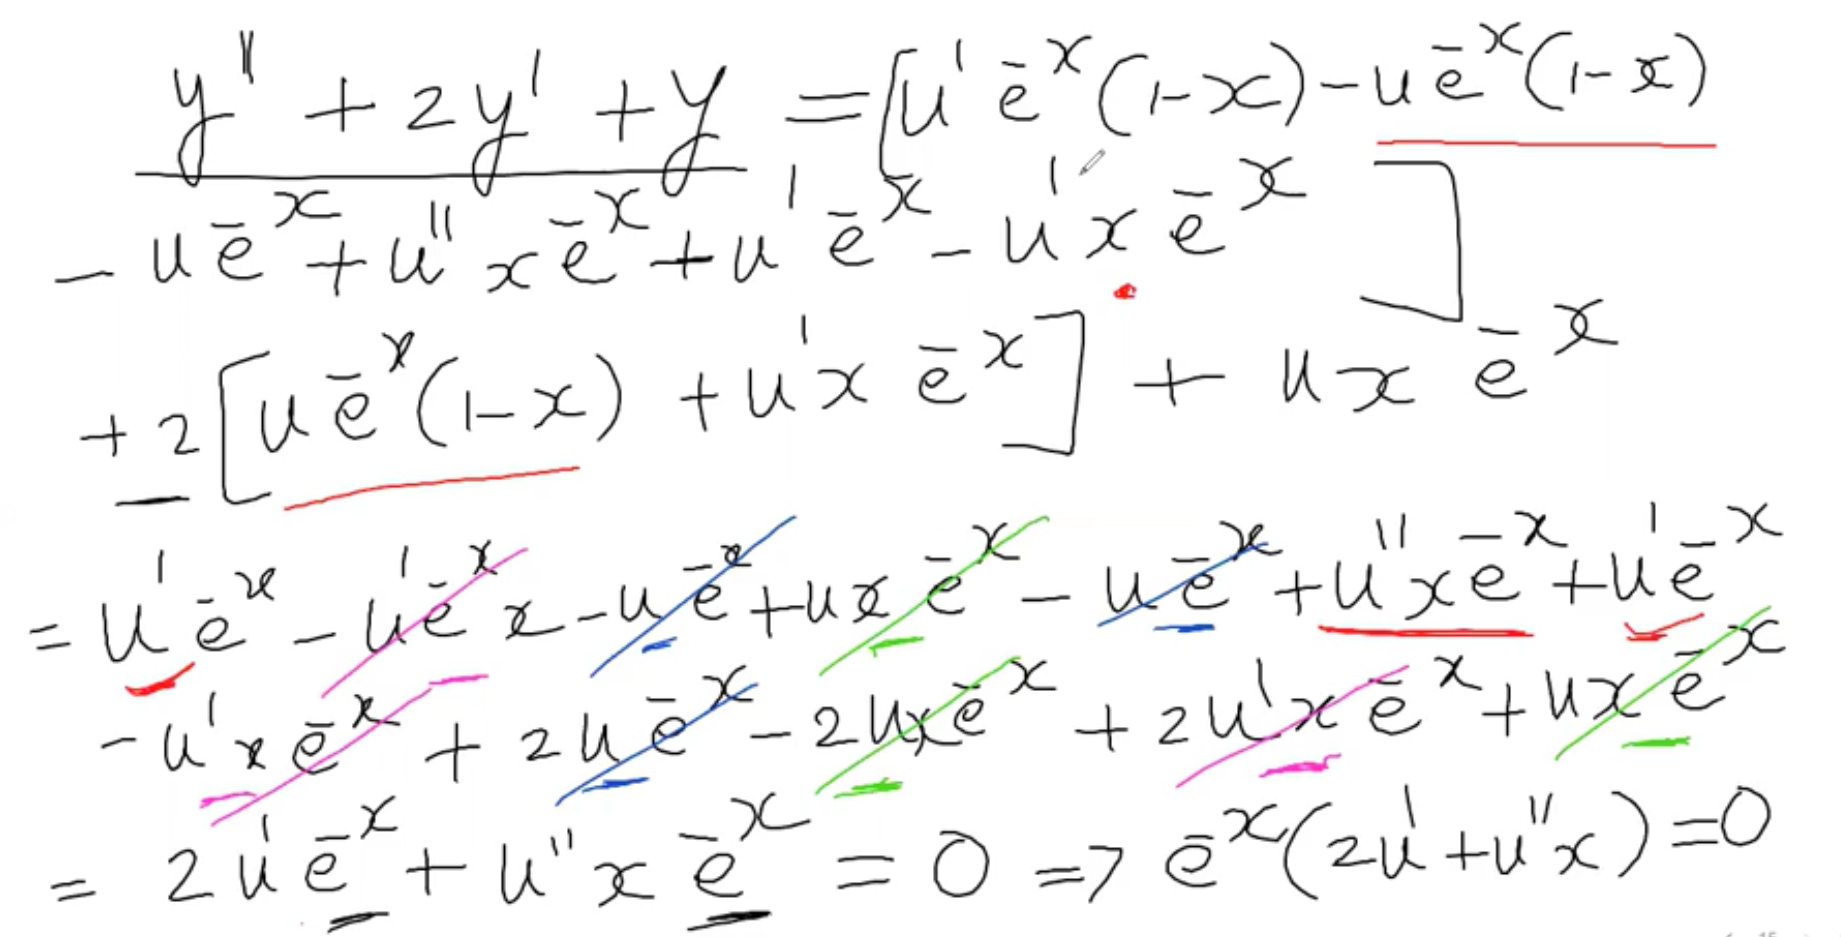 y'' + 2y' + y = [u' e^-x (1-x) - u e^-x (1-x)
- u e^-x + u'' x e^-x + u' e^-x - u' x e^-x ]
+ 2 [u e^-x (1-x) + u' x e^-x] + u x e^-x
= u' e^-x - u' e^-x x - u e^-x + u x e^-x - u e^-x + u'' x e^-x + u' e^-x
- u' x e^-x + 2 u e^-x - 2 u x e^-x + 2 u' x e^-x + u x e^-x
= 2 u' e^-x + u'' x e^-x = 0 => e^-x (2u' + u'' x) = 0